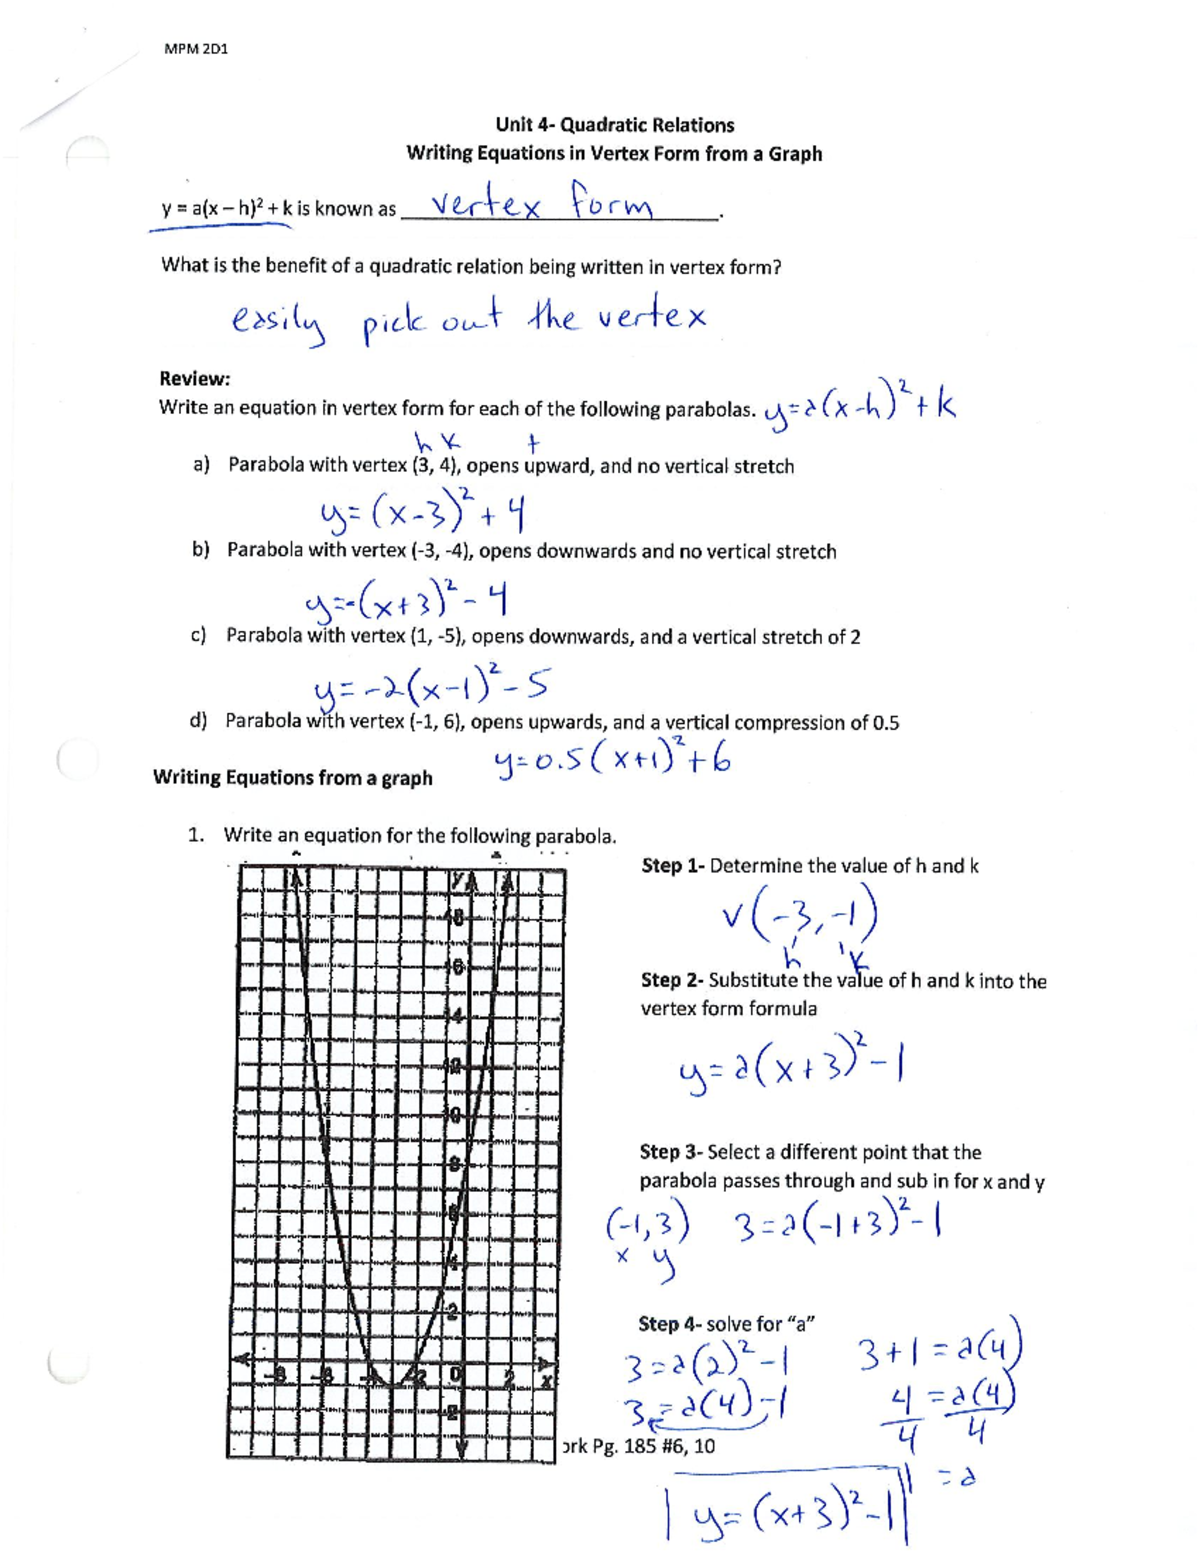 MPM 2D1
Unit 4- Quadratic Relations
Writing Equations in Vertex Form from a Graph
y = a(x – h)² + k is known as vertex form.
What is the benefit of a quadratic relation being written in vertex form?
easily pick out the vertex
Review:
Write an equation in vertex form for each of the following parabolas. y=a(x-h)²+k
h k +
a) Parabola with vertex (3, 4), opens upward, and no vertical stretch
y=(x-3)²+4
b) Parabola with vertex (-3, -4), opens downwards and no vertical stretch
y=-(x+3)²-4
c) Parabola with vertex (1, -5), opens downwards, and a vertical stretch of 2
y=-2(x-1)²-5
d) Parabola with vertex (-1, 6), opens upwards, and a vertical compression of 0.5
y=0.5(x+1)²+6
Writing Equations from a graph
1. Write an equation for the following parabola.
Step 1- Determine the value of h and k
v(-3,-1)
h k
Step 2- Substitute the value of h and k into the
vertex form formula
y=a(x+3)²-1
Step 3- Select a different point that the
parabola passes through and sub in for x and y
(-1,3) 3=a(-1+3)²-1
x y
Step 4- solve for “a”
3=a(2)²-1 3+1=a(4)
3=a(4)-1 4=a(4)
4 4
ork Pg. 185 #6, 10
1=a
y=(x+3)²-1
y
8
6
4
2
0
2
x